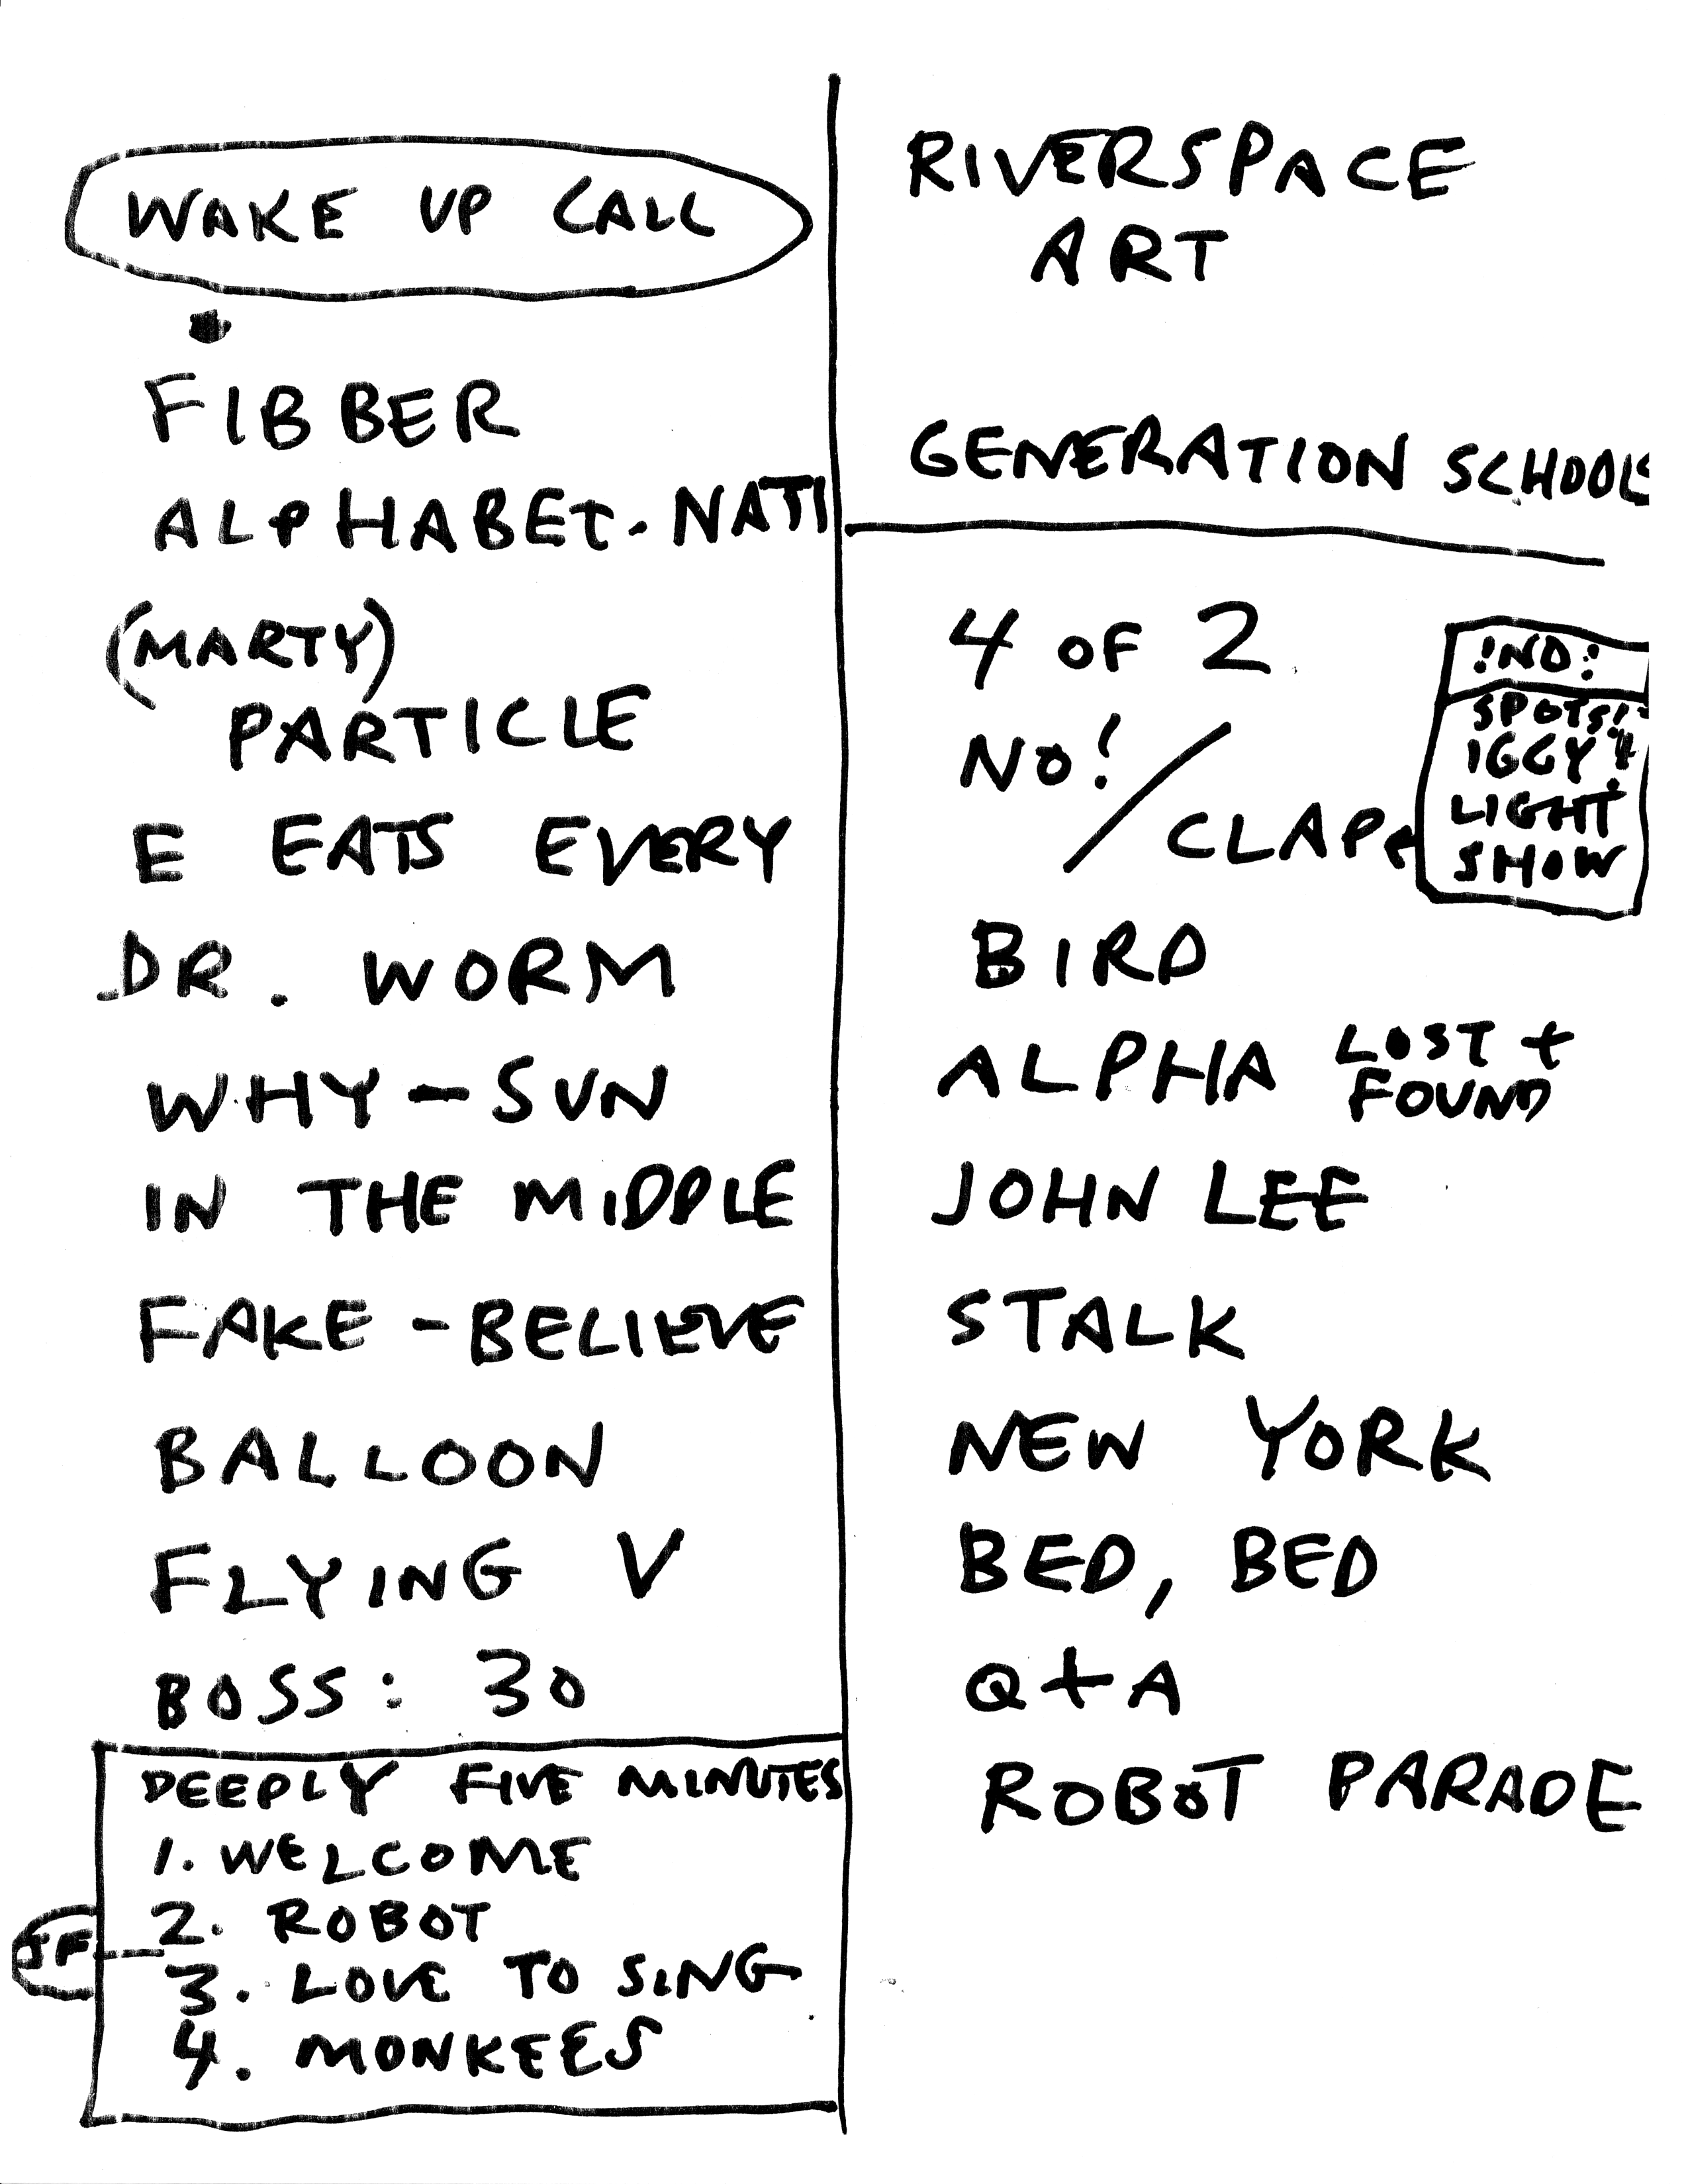 WAKE UP CALL
FIBBER
ALPHABET. NATI
(MARTY)
PARTICLE
E EATS EVERY
DR. WORM
WHY-SUN
IN THE MIDDLE
FAKE-BELIEVE
BALLOON
FLYING V
BOSS: 30
DEEPLY FIVE MINUTES
1. WELCOME
2. ROBOT
JF
3. LOVE TO SING
4. MONKEES
RIVERSPACE
ART
GENERATION SCHOOLS
4 OF 2
NO! / CLAP
!NO!
SPOTS!
IGGY
LIGHT
SHOW
BIRD
ALPHA LOST +
FOUND
JOHN LEE
STALK
NEW YORK
BED, BED
Q+A
ROBOT PARADE